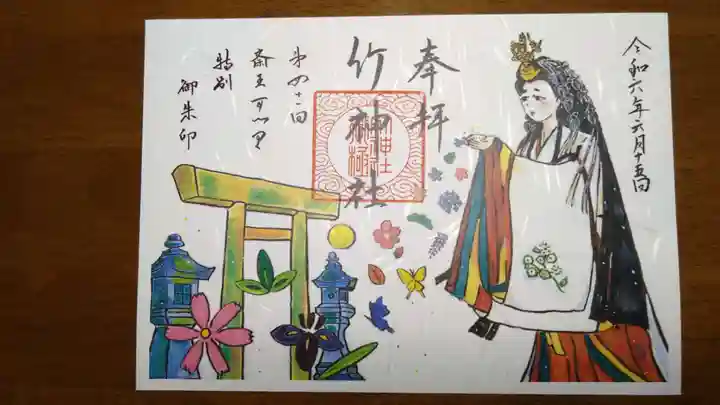 令和六年六月十五日
奉拝
竹神社
第四十一回
斎王まつり
特別
御朱印